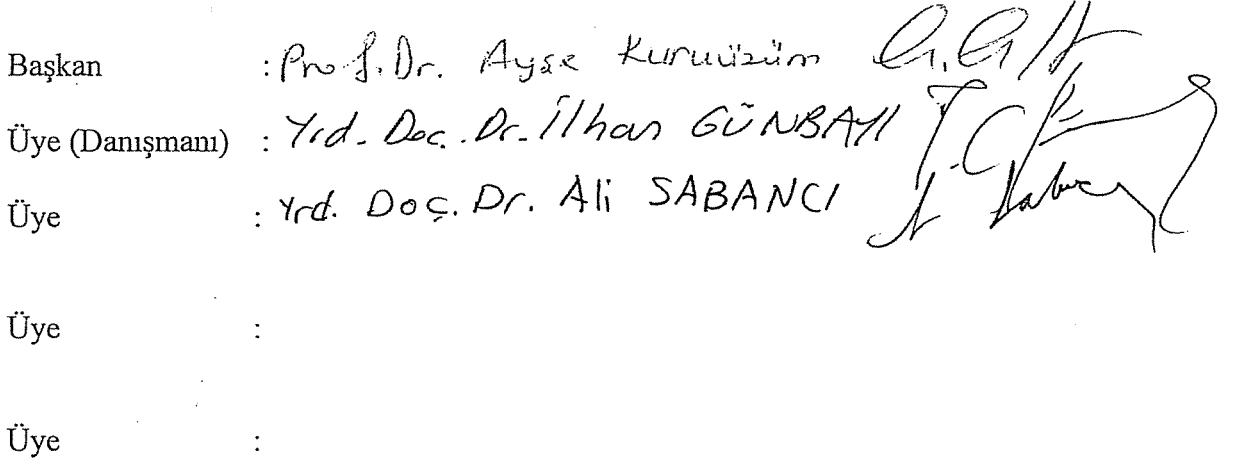 Başkan : Prof. Dr. Ayşe Kuruüzüm
Üye (Danışmanı) : Yrd. Doç. Dr. İlhan GÜNBAYI
Üye : Yrd. Doç. Dr. Ali SABANCI
Üye :
Üye :